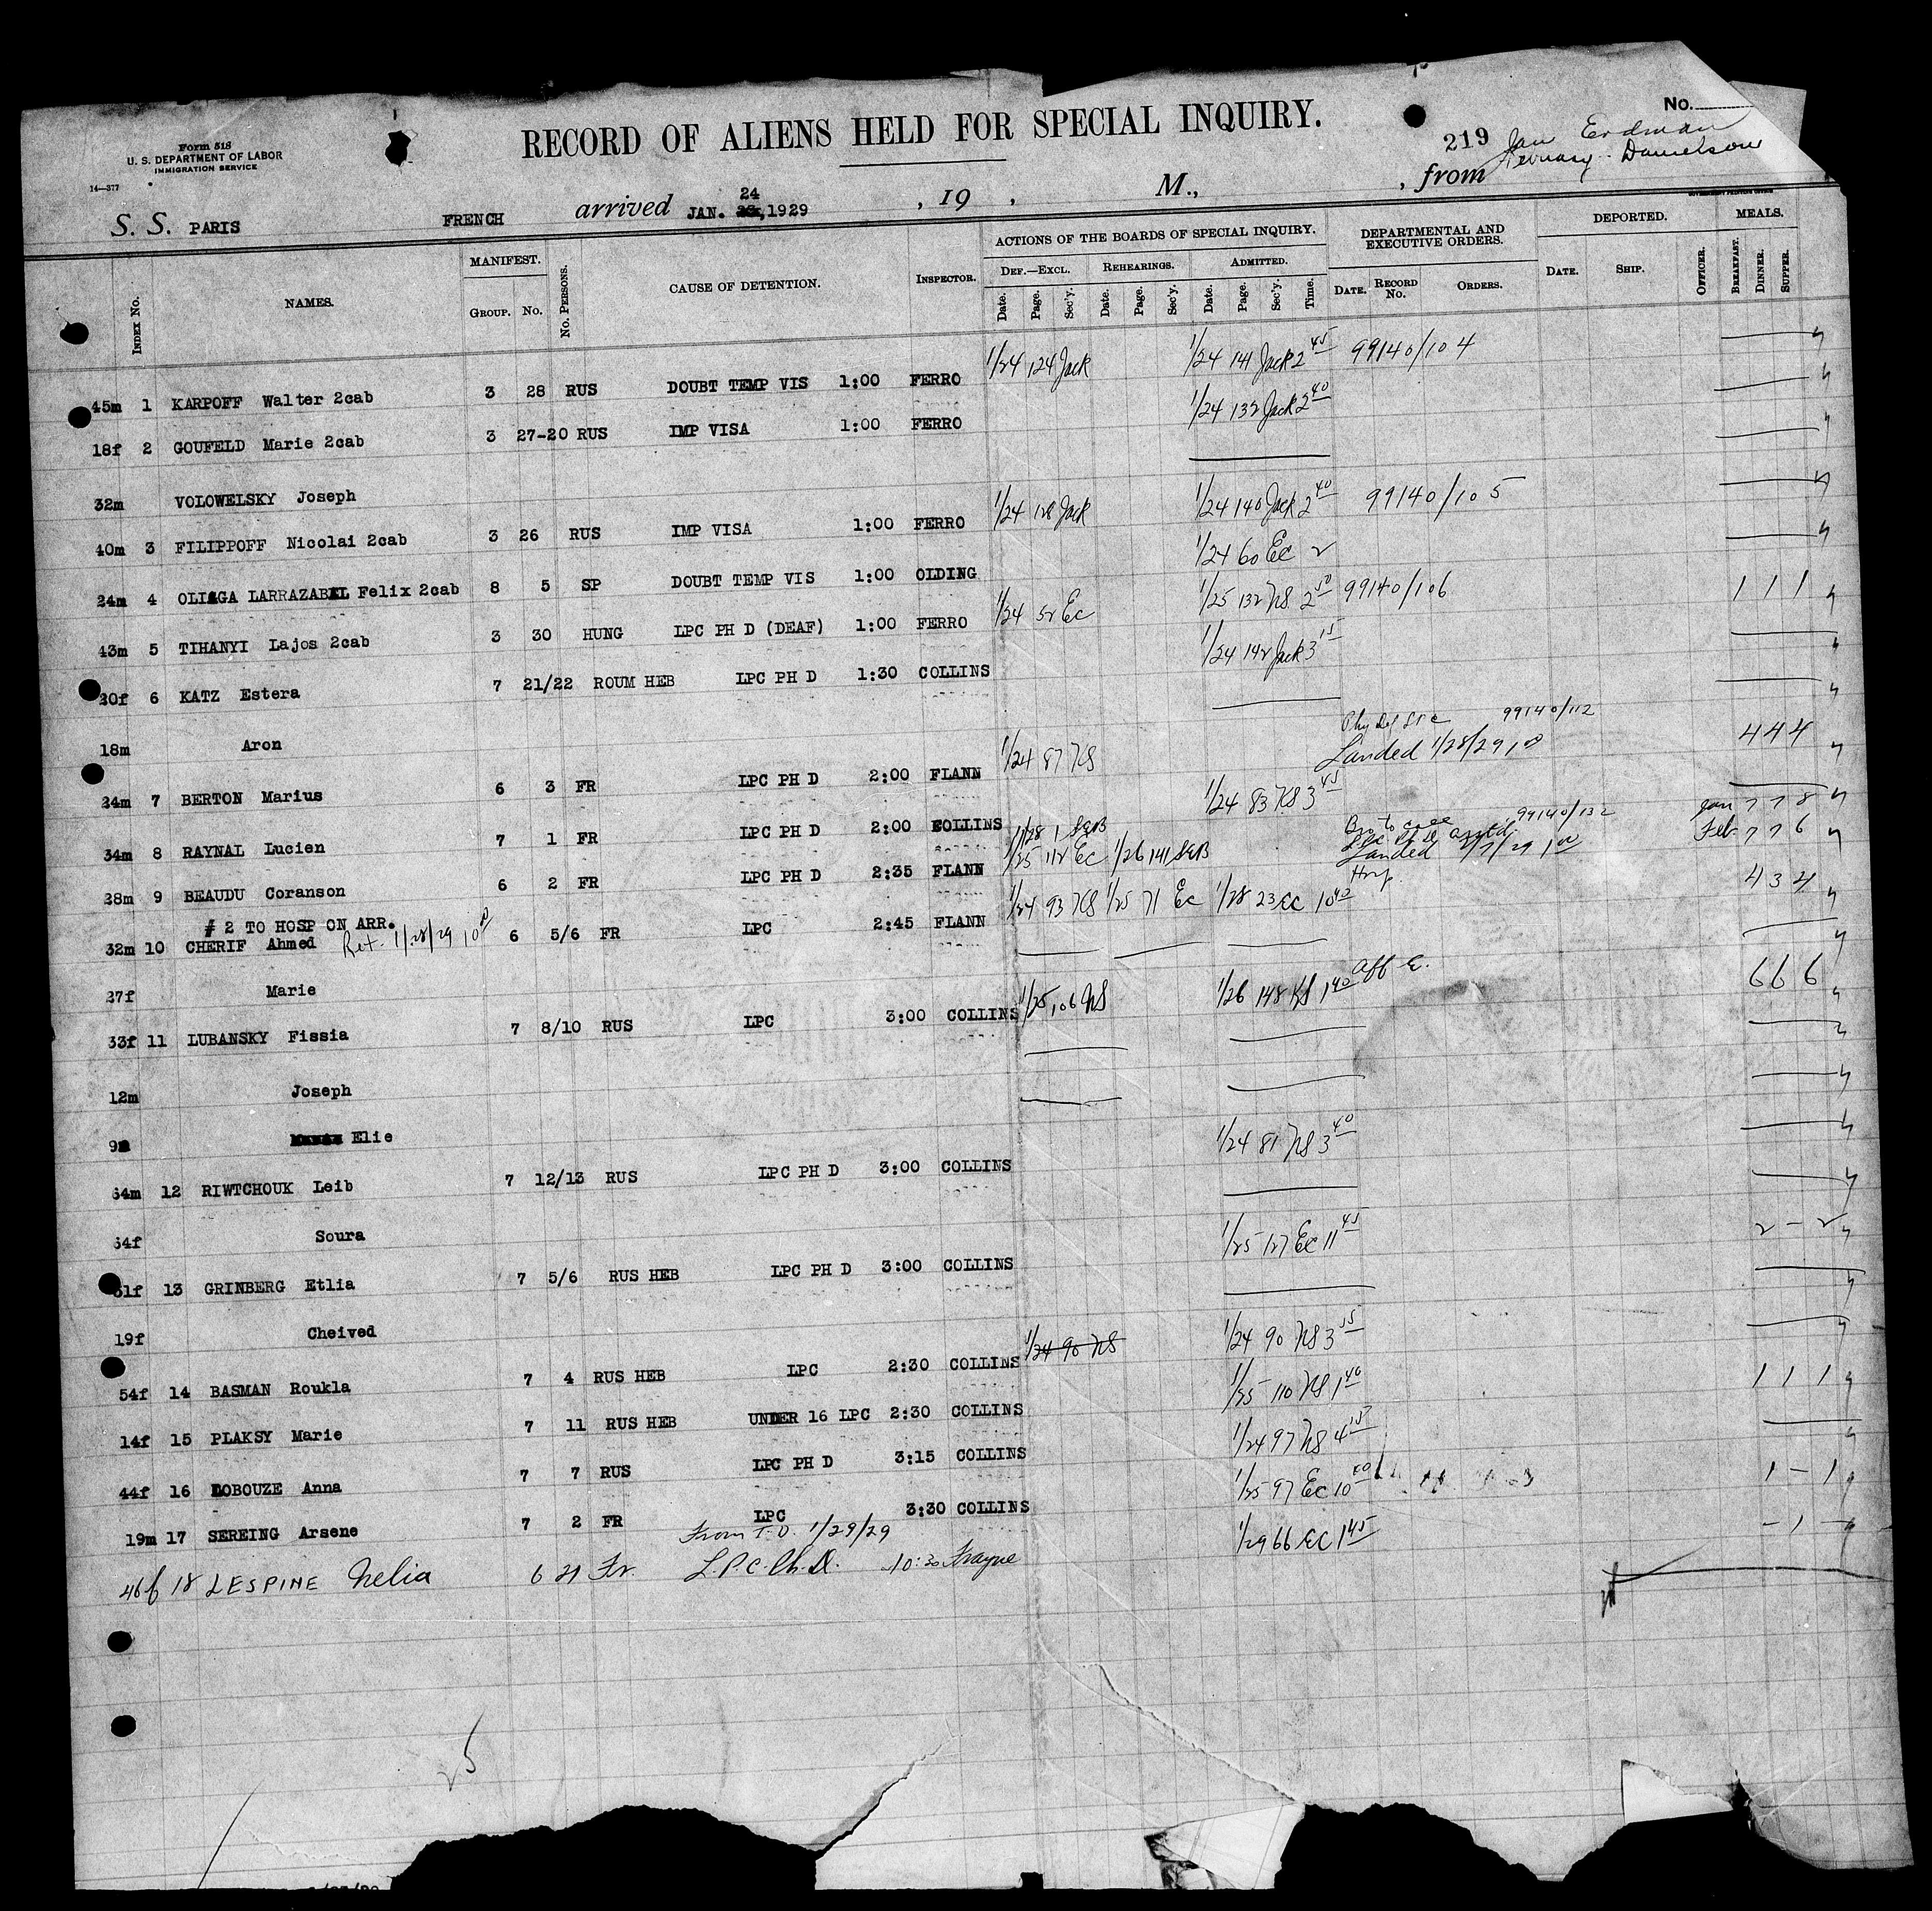 No.
Form 518
U. S. DEPARTMENT OF LABOR
IMMIGRATION SERVICE
14—377
RECORD OF ALIENS HELD FOR SPECIAL INQUIRY.
219 Jan Erdman
Danielson
S. S. PARIS FRENCH arrived JAN. 24, 1929 , 19 , M., , from
INDEX No. NAMES. MANIFEST. GROUP. No. No. PERSONS. CAUSE OF DETENTION. INSPECTOR. ACTIONS OF THE BOARDS OF SPECIAL INQUIRY. DEF.—EXCL. REHEARINGS. ADMITTED. DEPARTMENTAL AND EXECUTIVE ORDERS. DEPORTED. MEALS.
Date. Page. Sec'y. Date. Page. Sec'y. Date. Page. Sec'y. Time. DATE. RECORD No. ORDERS. DATE. SHIP. OFFICER. BREAKFAST. DINNER. SUPPER.
45m 1 KARPOFF Walter 2cab 3 28 RUS DOUBT TEMP VIS 1:00 FERRO 1/24 124 Jack 1/24 141 Jack 2 45 99140/104
18f 2 GOUFELD Marie 2cab 3 27-20 RUS IMP VISA 1:00 FERRO 1/24 132 Jack 2 40
32m VOLOWELSKY Joseph
40m 3 FILIPPOFF Nicolai 2cab 3 26 RUS IMP VISA 1:00 FERRO 1/24 128 Jack 1/24 140 Jack 2 40 99140/105
24m 4 OLIAGA LARRAZABAL Felix 2cab 8 5 SP DOUBT TEMP VIS 1:00 OLDING 1/24 60 Ec 2
43m 5 TIHANYI Lajos 2cab 3 30 HUNG LPC PH D (DEAF) 1:00 FERRO 1/24 52 Ec 1/25 132 NS 2 50 99140/106 1 1 1
20f 6 KATZ Estera 7 21/22 ROUM HEB LPC PH D 1:30 COLLINS 1/24 142 Jack 3 15
18m Aron
24m 7 BERTON Marius 6 3 FR LPC PH D 2:00 FLANN 1/24 87 NS 99140/112 Landed 1/28/29 4 4 4
34m 8 RAYNAL Lucien 7 1 FR LPC PH D 2:00 COLLINS 1/24 83 NS 3 45
28m 9 BEAUDU Coranson 6 2 FR LPC PH D 2:35 FLANN 1/28 1 S&B 1/25 112 Ec 1/26 141 S&B 99140/132 Landed Jan 7 7 8 Feb 7 7 6
# 2 TO HOSP ON ARR.
32m 10 CHERIF Ahmed Ret. 1/28/29 6 5/6 FR LPC 2:45 FLANN 1/24 93 NS 1/25 71 Ec 1/28 23 EC 10 40 4 3 4
27f Marie
33f 11 LUBANSKY Fissia 7 8/10 RUS LPC 3:00 COLLINS 1/25 106 NS 1/26 148 NS 1 40 aff 6 6 6
12m Joseph
9m Elie
64m 12 RIWTCHOUK Leib 7 12/13 RUS LPC PH D 3:00 COLLINS 1/24 81 NS 3 40
64f Soura
51f 13 GRINBERG Etlia 7 5/6 RUS HEB LPC PH D 3:00 COLLINS 1/25 127 Ec 11 45 2 - 2
19f Cheived
54f 14 BASMAN Roukla 7 4 RUS HEB LPC 2:30 COLLINS 1/24 90 NS 1/24 90 NS 3 55
14f 15 PLAKSY Marie 7 11 RUS HEB UNDER 16 LPC 2:30 COLLINS 1/25 110 NS 1 40 1 1 1
44f 16 LOBOUZE Anna 7 7 RUS LPC PH D 3:15 COLLINS 1/24 97 NS 4 15
19m 17 SEREING Arsene 7 2 FR LPC 3:30 COLLINS 1/25 97 Ec 10 40 1 - 1
From T.D. 1/29/29
46f 18 LESPINE Nelia 6 21 Fr. L.P.C. Ph.D. 10:30 Frayne 1/29 66 EC 1 45 - 1 -
25